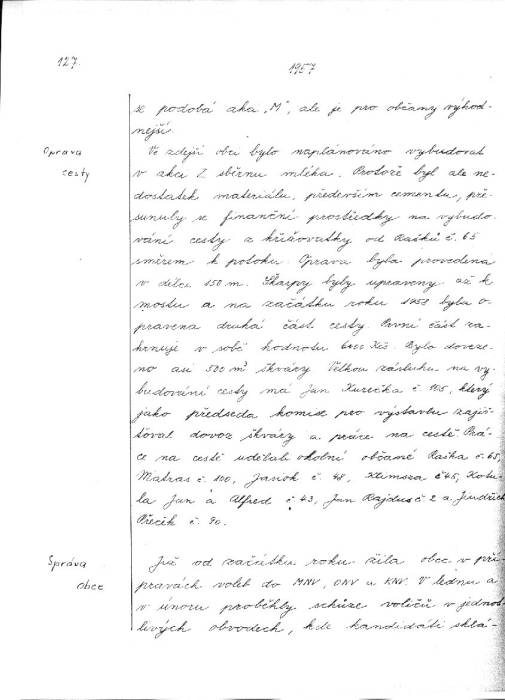 127.
1957
se podobá akci „M", ale je pro občany výhod-
nější.
Oprava
cesty
Ve zdejší obci bylo naplánováno vybudovat
v akci Z sběrnu mléka. Protože byl ale ne-
dostatek materiálu, především cementu, pře-
sunuly se finanční prostředky na vybudo-
vání cesty z křižovatky od Rašků č. 65
směrem k potoku. Oprava byla provedena
v délce 150 m. Škarpy byly upraveny až k
mostu a na začátku roku 1958 byla o-
pravena druhá část cesty. První část za-
hrnuje v sobě hodnotu Kčs. Bylo doveze-
no asi 500 m³ škváry. Velkou zásluhu na vy-
budování cesty má Jan Kurečka č. 105, který
jako předseda komise pro výstavbu zajiš-
ťoval dovoz škváry a práce na cestě. Prá-
ce na cestě udělali okolní občané Raška č. 65,
Matras č. 100, Jasiok č. 48, Klimsza č. 45, Kotu-
la Jan a Alfred č. 43, Jan Kajdus č. 2 a Jindřich
č. 90.
Správa
obce
Již od začátku roku žila obec v pří-
pravách voleb do MNV, ONV a KNV. V lednu a
v únoru proběhly schůze voličů v jednot-
livých obvodech, kde kandidáti sklá-